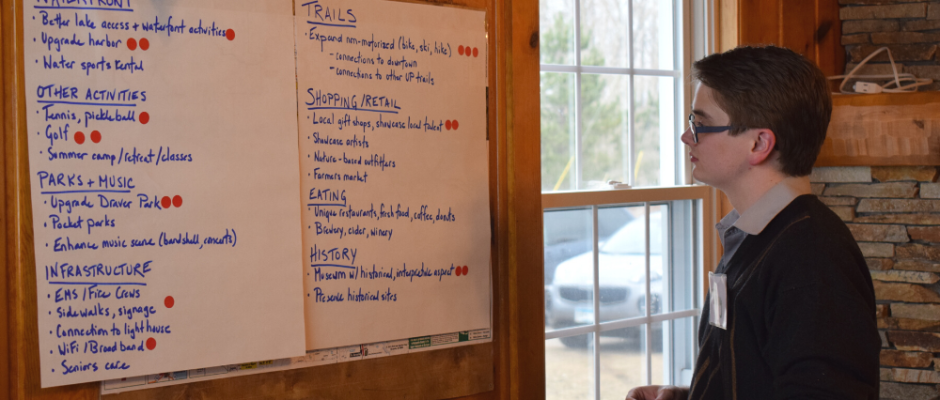 WATERFRONT
· Better lake access + waterfont activities
· Upgrade harbor
· Water sports rental
OTHER ACTIVITIES
· Tennis, pickleball
· Golf
· Summer camp/retreat/classes
PARKS + MUSIC
· Upgrade Draver Park
· Pocket parks
· Enhance music scene (bandshell, concerts)
INFRASTRUCTURE
· EMS/Fire Crews
· Sidewalks, signage
· Connection to lighthouse
· WiFi/Broadband
· Seniors care
TRAILS
· Expand non-motorized (bike, ski, hike)
- connections to downtown
- connections to other UP trails
SHOPPING/RETAIL
· Local gift shops, showcase local talent
· Showcase artists
· Nature-based outfitters
· Farmers market
EATING
· Unique restaurants, fresh food, coffee, donuts
· Brewery, cider, winery
HISTORY
· Museum w/ historical, interpretive aspect
· Preserve historical sites